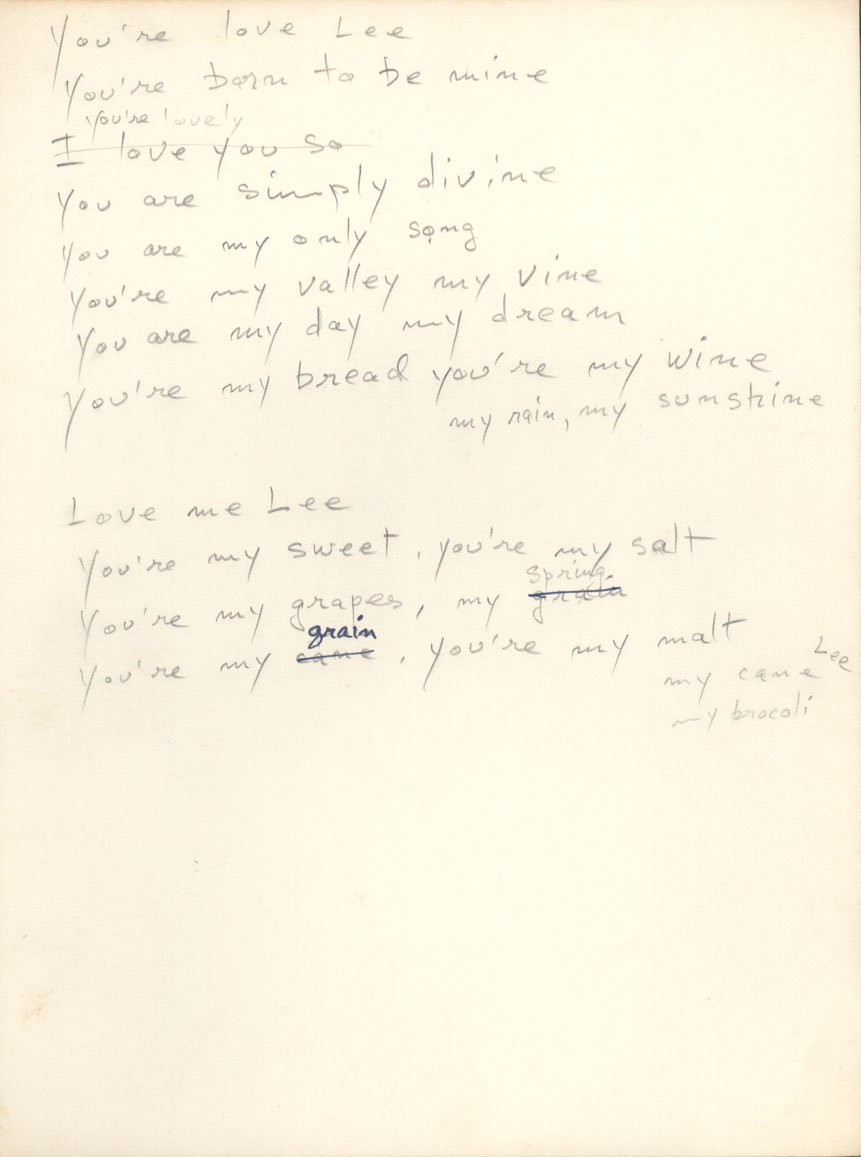 You're love Lee
You're born to be mine
You're lovely
I love you so
You are simply divine
You are my only song
You're my valley my vine
You are my day my dream
You're my bread you're my wine
my rain, my sunshine
Love me Lee
You're my sweet, you're my salt
spring
You're my grapes, my grain
grain
You're my cane, you're my malt
my cane Lee
my brocoli